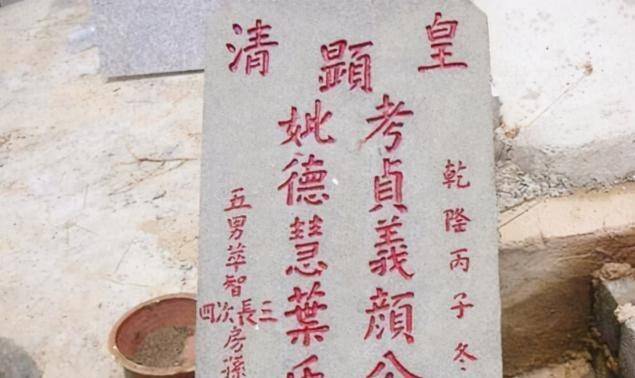 皇清
顯
乾隆丙子冬
考貞義顔公
妣德慧葉
五男萃智
三長次四
房孫